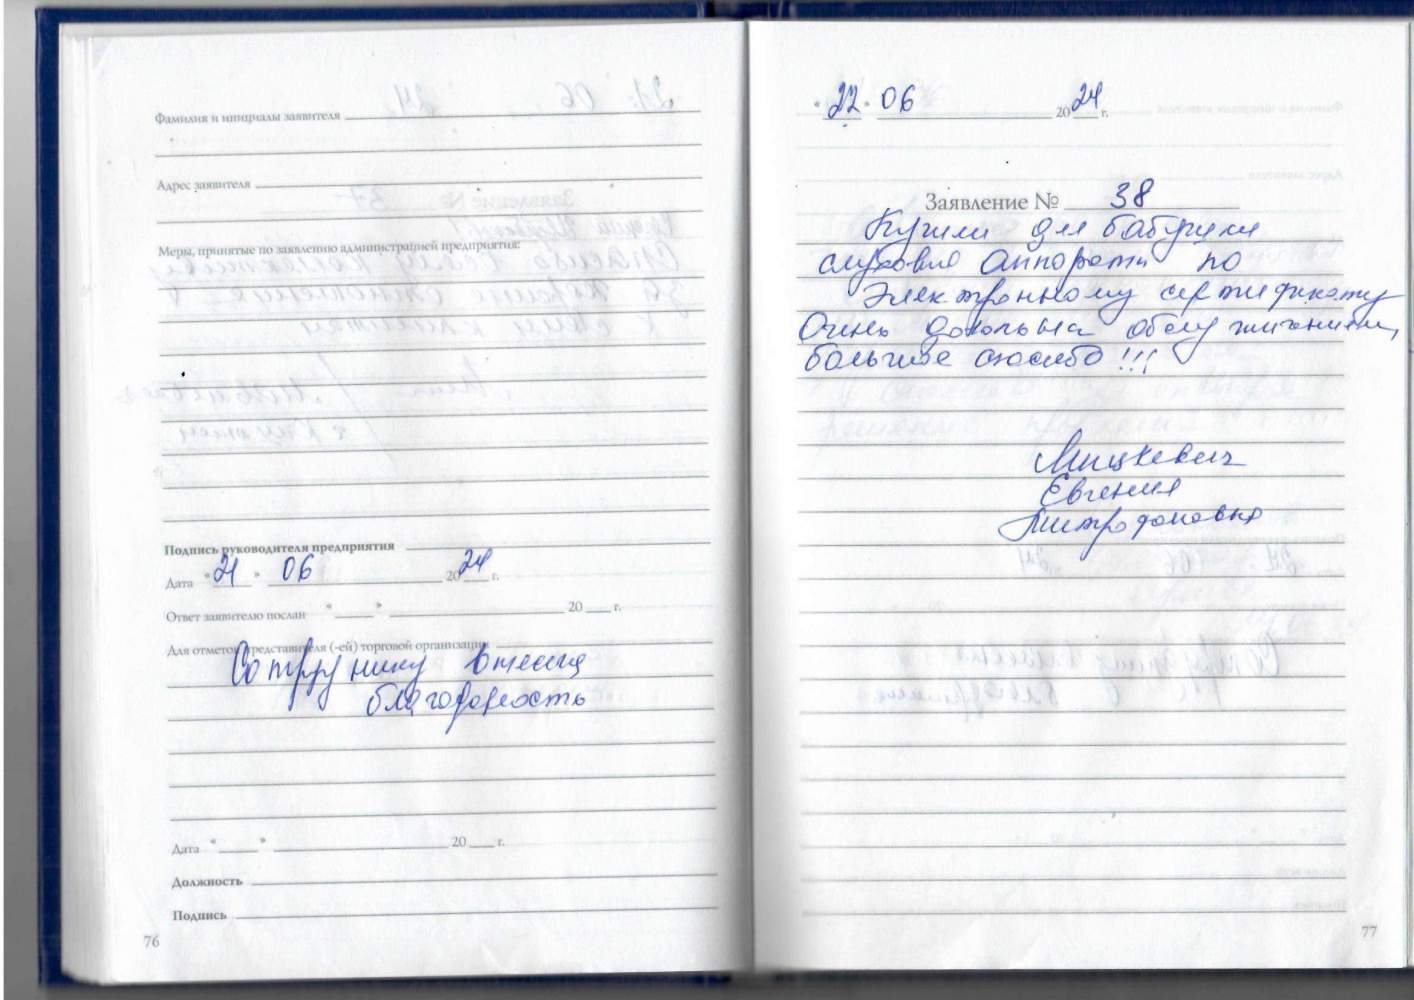 Фамилия и инициалы заявителя
Адрес заявителя
Меры, принятые по заявлению администрацией предприятия:
Подпись руководителя предприятия
Дата "21" 06 2024 г.
Ответ заявителю послан " " 20 г.
Для отметок представителя (-ей) торговой организации
Сотруднику внесена
благодарность
Дата " " 20 г.
Должность
Подпись
76
"22" 06 2024 г.
Заявление № 38
Купили для бабушки
слуховые аппараты по
Электронному сертификату
Очень довольна обслуживанием,
большое спасибо !!!
Мицкевич
Евгения
Митрофановна
77